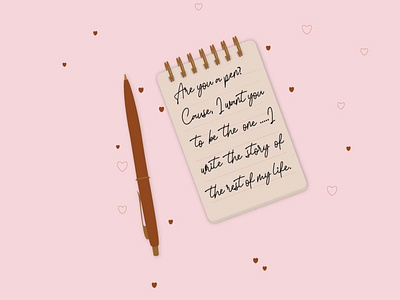 Are you a pen?
Cause, I want you
to be the one .....I
write the story of
the rest of my life.